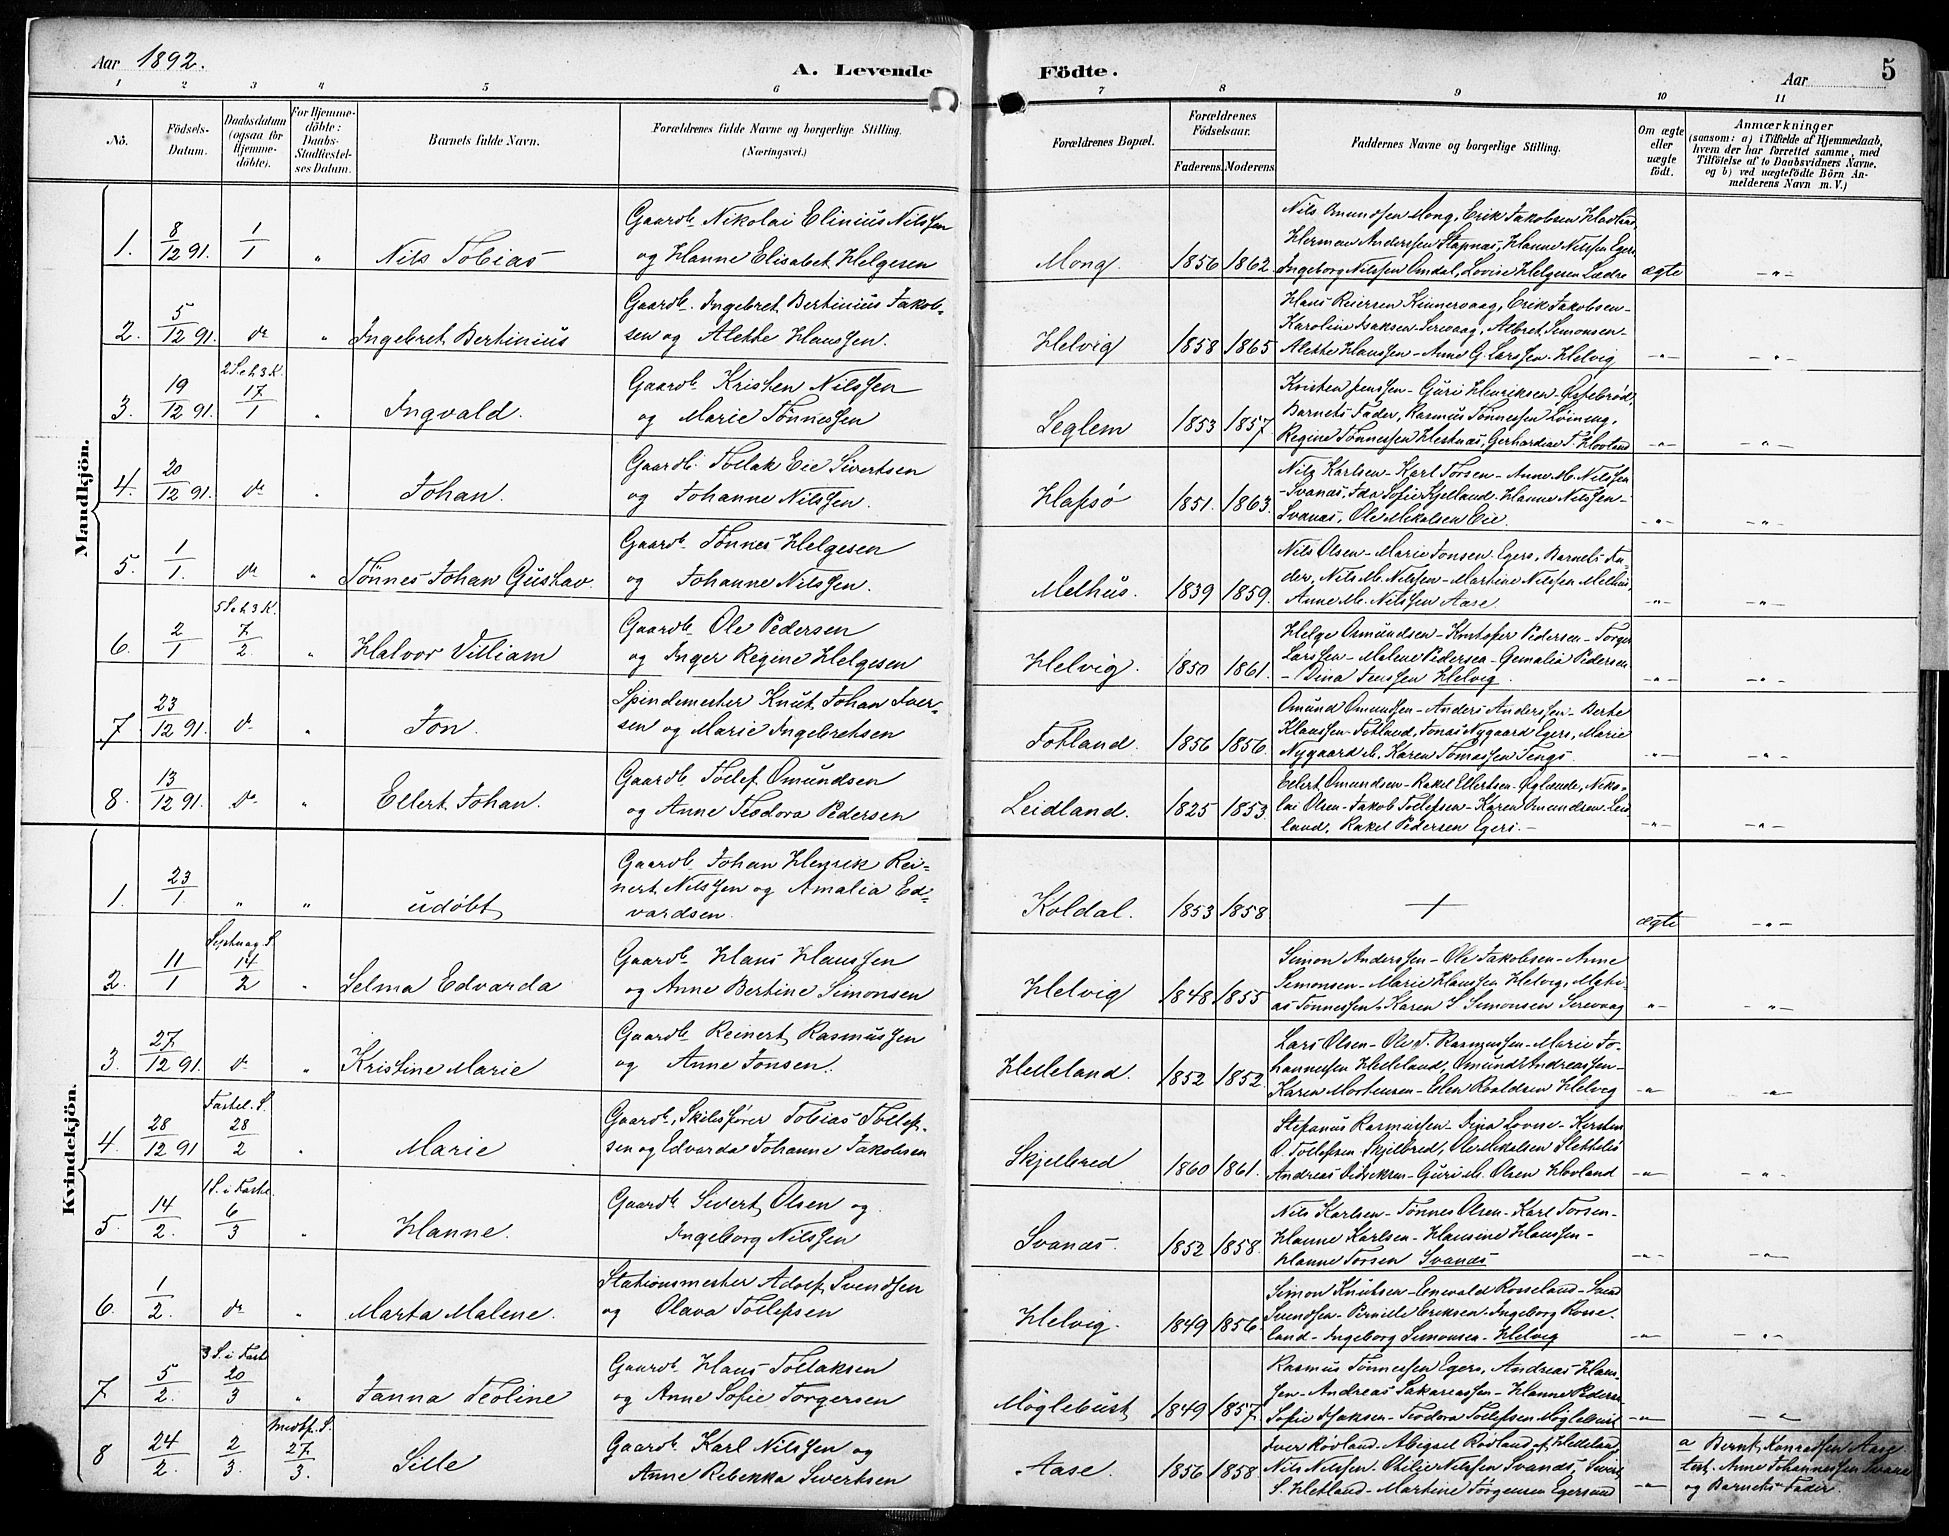 Aar 1892.
A. Levende Födte.
Aar
5
1 2 3 4 5 6 7 8 9 10 11
No.
Födsels-
Datum.
Daabsdatum
(ogsaa for
Hjemme-
döbte).
For Hjemme-
döbte:
Daabs-
Stadfæstel-
ses Datum.
Barnets fulde Navn.
Forældrenes fulde Navne og borgerlige Stilling.
(Næringsvei.)
Forældrenes Bopæl.
Forældrenes
Födselsaar.
Faderens. Moderens.
Faddernes Navne og borgerlige Stilling.
Om ægte
eller
uægte
födt.
Anmærkninger
(saasom: a) i Tilfælde af Hjemmedaab,
hvem der har forrettet samme, med
Tilföielse af to Daabsvidners Navne.
og b) ved uægtefödte Börn An-
melderens Navn m. V.)
Mandkjön.
1. 8/12 91. 1/1 " Nils Tobias
Gaardb. Nikolai Elinius Nilssen
og Hanne Elisabet Helgesen
Mong. 1856 1862.
Nils Omundsen Mong, Erik Jakobsen
Herman Anderssen Stapnas, Hanne Nilssen Egers
Ingeborg Nilssen Omdal, Lovise Helgesen
ægte -"-
2. 5/12 91. do " Ingebret Bertinius
Gaardb. Ingebret Bertinius Jakob-
sen og Alette Hanssen.
Helvig 1858 1865
Hans Reiersen Kinnervaag, Erik Jakobsen-
Karoline Isaksen Sirevaag, Albret Simonsen-
Alette Hanssen- Anne G. Larssen. Helvig
-"- -"-
3. 19/12 91. 2 S. e. h. 3 K. 17/1 " Ingvald.
Gaardb. Kristen Nilssen
og Marie Tønnessen
Seglem 1853 1857.
Kristen Jenssen- Guri Henriksen-
Barnets Fader, Rasmus Tønnessen
Regine Tønnessen Hestnas, Gerhardine T. Hovland
-"- -"-
4. 20/12 91. do " Johan.
Gaardb. Tollak Eie Sivertsen
og Johanne Nilssen.
Hafsø 1851. 1863.
Nils Karlsen- Karl Torsen- Anne M. Nilssen
-Svanas, Ida Sofie Kjelland. Hanne Nilssen-
Svanas, Ole Mikalsen Eie.
-"- -"-
5. 1/1. do " Tönnes Johan Gustav.
Gaardb. Tønnes Helgesen
og Johanne Nilssen.
Melhus. 1839 1859.
Nils Olsen- Marie Jonsen Egers, Barnets Fa-
der, Nils M. Nilssen- Martine Nilssen Melhus,
Anne M. Nilssen Aase.
-"- -"-
6. 2/1 5 S. e. h. 3 K. 7/2. " Halvor Villiam
Gaardb. Ole Pedersen
og Inger Regine Helgesen
Helvig. 1850 1861.
Helge Osmundsen- Kristofer Pedersen- Torger
Larssen- Malene Pedersen- Gemalia Pedersen
- Dina Jenssen Helvig.
-"- -"-
7 23/12 91. do " Jon.
Spindemester Knut Johan Iver-
sen og Marie Ingebretsen
Fotland. 1856 1856.
Omund Omundsen- Anders Anderssen- Berte
Klaussen- Fotland, Jonas Nygaard Egers, Marie
Nygaard do, Karen Tomassen Tengs.
-"- -"-
8. 13/12 91. do " Ellert Johan.
Gaardb. Tollef Omundsen
og Anne Teodora Pedersen
Leidland. 1825 1853.
Ellert Omundsen- Rakel Ellertsen- Øglænde, Niko-
lai Olsen- Jakob Tollefsen- Karen Omundsen- Leid-
land, Rakel Pedersen Egers.-
-"- -"-
Kvindekjön.
1. 23/1 " " udøbt
Gaardb. Johan Henrik Rei-
nert Nilssen og Amalia Ed-
vardsen.
Koldal. 1853 1858.
+
ægte -"-
2. 11/1 Septuag. S. 14/2 " Selma Edvarda
Gaardb. Hans Hanssen
og Anne Bertine Simonsen
Helvig 1848 1855
Simon Anderssen- Ole Jakobsen- Anne
Simonsen- Marie Hanssen Helvig, Mati-
as Tønnessen- Karen S Simonsen Sirevaag
"- "
3. 27/12 91. do " Kristine Marie
Gaardb. Reinert Rasmussen
og Anne Jonsen.
Helleland. 1852 1852.
Lars Olsen- Ole T. Rasmussen- Marie Jo-
hannesen Helleland, Omund Andreassen-
Karen Mortensen- Elen Roaldsen Helvig
-"- -"-
4. 28/12 91 Fastel. S. 28/2 " Marie
Gaardb., Skibsfører Tobias Tollef-
sen og Edvarda Johanne Jakobsen
Skjelbred 1860 1861.
Stefanus Rasmussen- Dina Lovne- Kirsten
O. Tollefsen- Skjelbred, Ole Mikalsen
Andreas Didriksen- Guri M. Olsen Hovland
-"- -"-
5. 14/2. 1 S. i Faste. 6/3 " Hanne.
Gaardb. Sivert Olsen og
Ingeborg Nilssen
Svanas. 1852 1858.
Nils Karlsen- Tønnes Olsen- Karl Torsen-
Hanne Karlsen- Hansine Hanssen-
Hanne Torsen Svanas
-"- -"-
6. 1/2. do " Marta Malene.
Stationsmester Adolf Svendsen
og Olava Tollefsen
Helvig. 1849 1856.
Simon Knutsen- Enevald Rosseland- Svend
Svendsen- Pernille Eriksen- Ingeborg Rosse-
land- Ingeborg Simonsen- Helvig
-"- -"-
7 5/2. 3 S. i Faste 20/3 " Janna Teoline
Gaardb. Hans Tollaksen
og Anne Sofie Torgersen
Møglebust 1849 1857.
Rasmus Tønnessen Egers, Andreas Hans-
sen- Andreas Sakariassen- Hanne Pedersen
Sofie Isaksen- Teodora Tollefsen Møglebust
-"- -"-
8 24/2. 2/3. Midtf. S. 27/3. Sille
Gaardb. Karl Nilssen og
Anne Rebekka Sivertsen
Aase. 1856 1858.
Iver Rødland- Abigael Rødland af Helleland
Nils Nilssen- Otilie Nilssen Svanas, Sivert
S. Hetland- Martine Torgersen Egersund
-"-
a Bernt Konradsen Aase.
test. Anne Johannessen Svanas
og Barnets Fader.